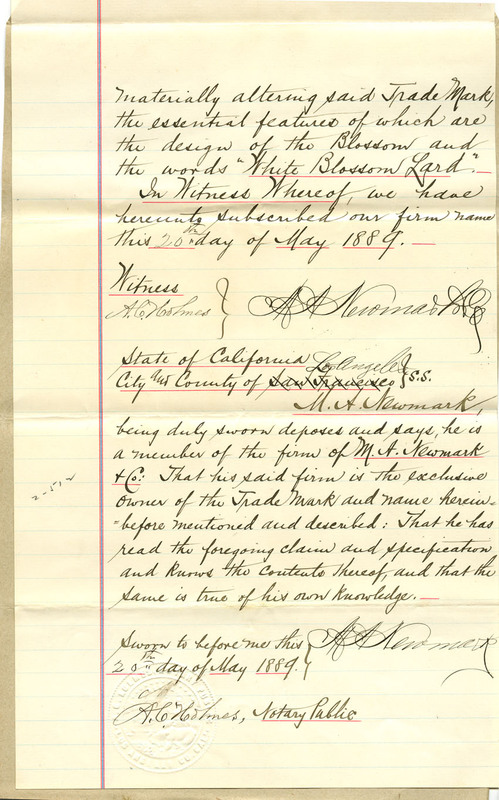 materially altering said Trade Mark,
the essential features of which are
the design of the Blossom and
the words "White Blossom Lard".
In Witness Whereof, we have
hereunto subscribed our firm name
this 20th day of May 1889.
Witness
A.C. Holmes } M A Newmark & Co
State of California
Los Angeles
City and County of San Francisco } S.S.
M. A. Newmark,
being duly sworn deposes and says, he is
a member of the firm of M. A. Newmark
& Co: That his said firm is the exclusive
owner of the Trade Mark and name herein-
"before mentioned and described: That he has
read the foregoing claim and specification
and knows the contents thereof, and that the
same is true of his own knowledge.
Sworn to before me this } M A Newmark
20th day of May 1889.
A.C. Holmes, Notary Public